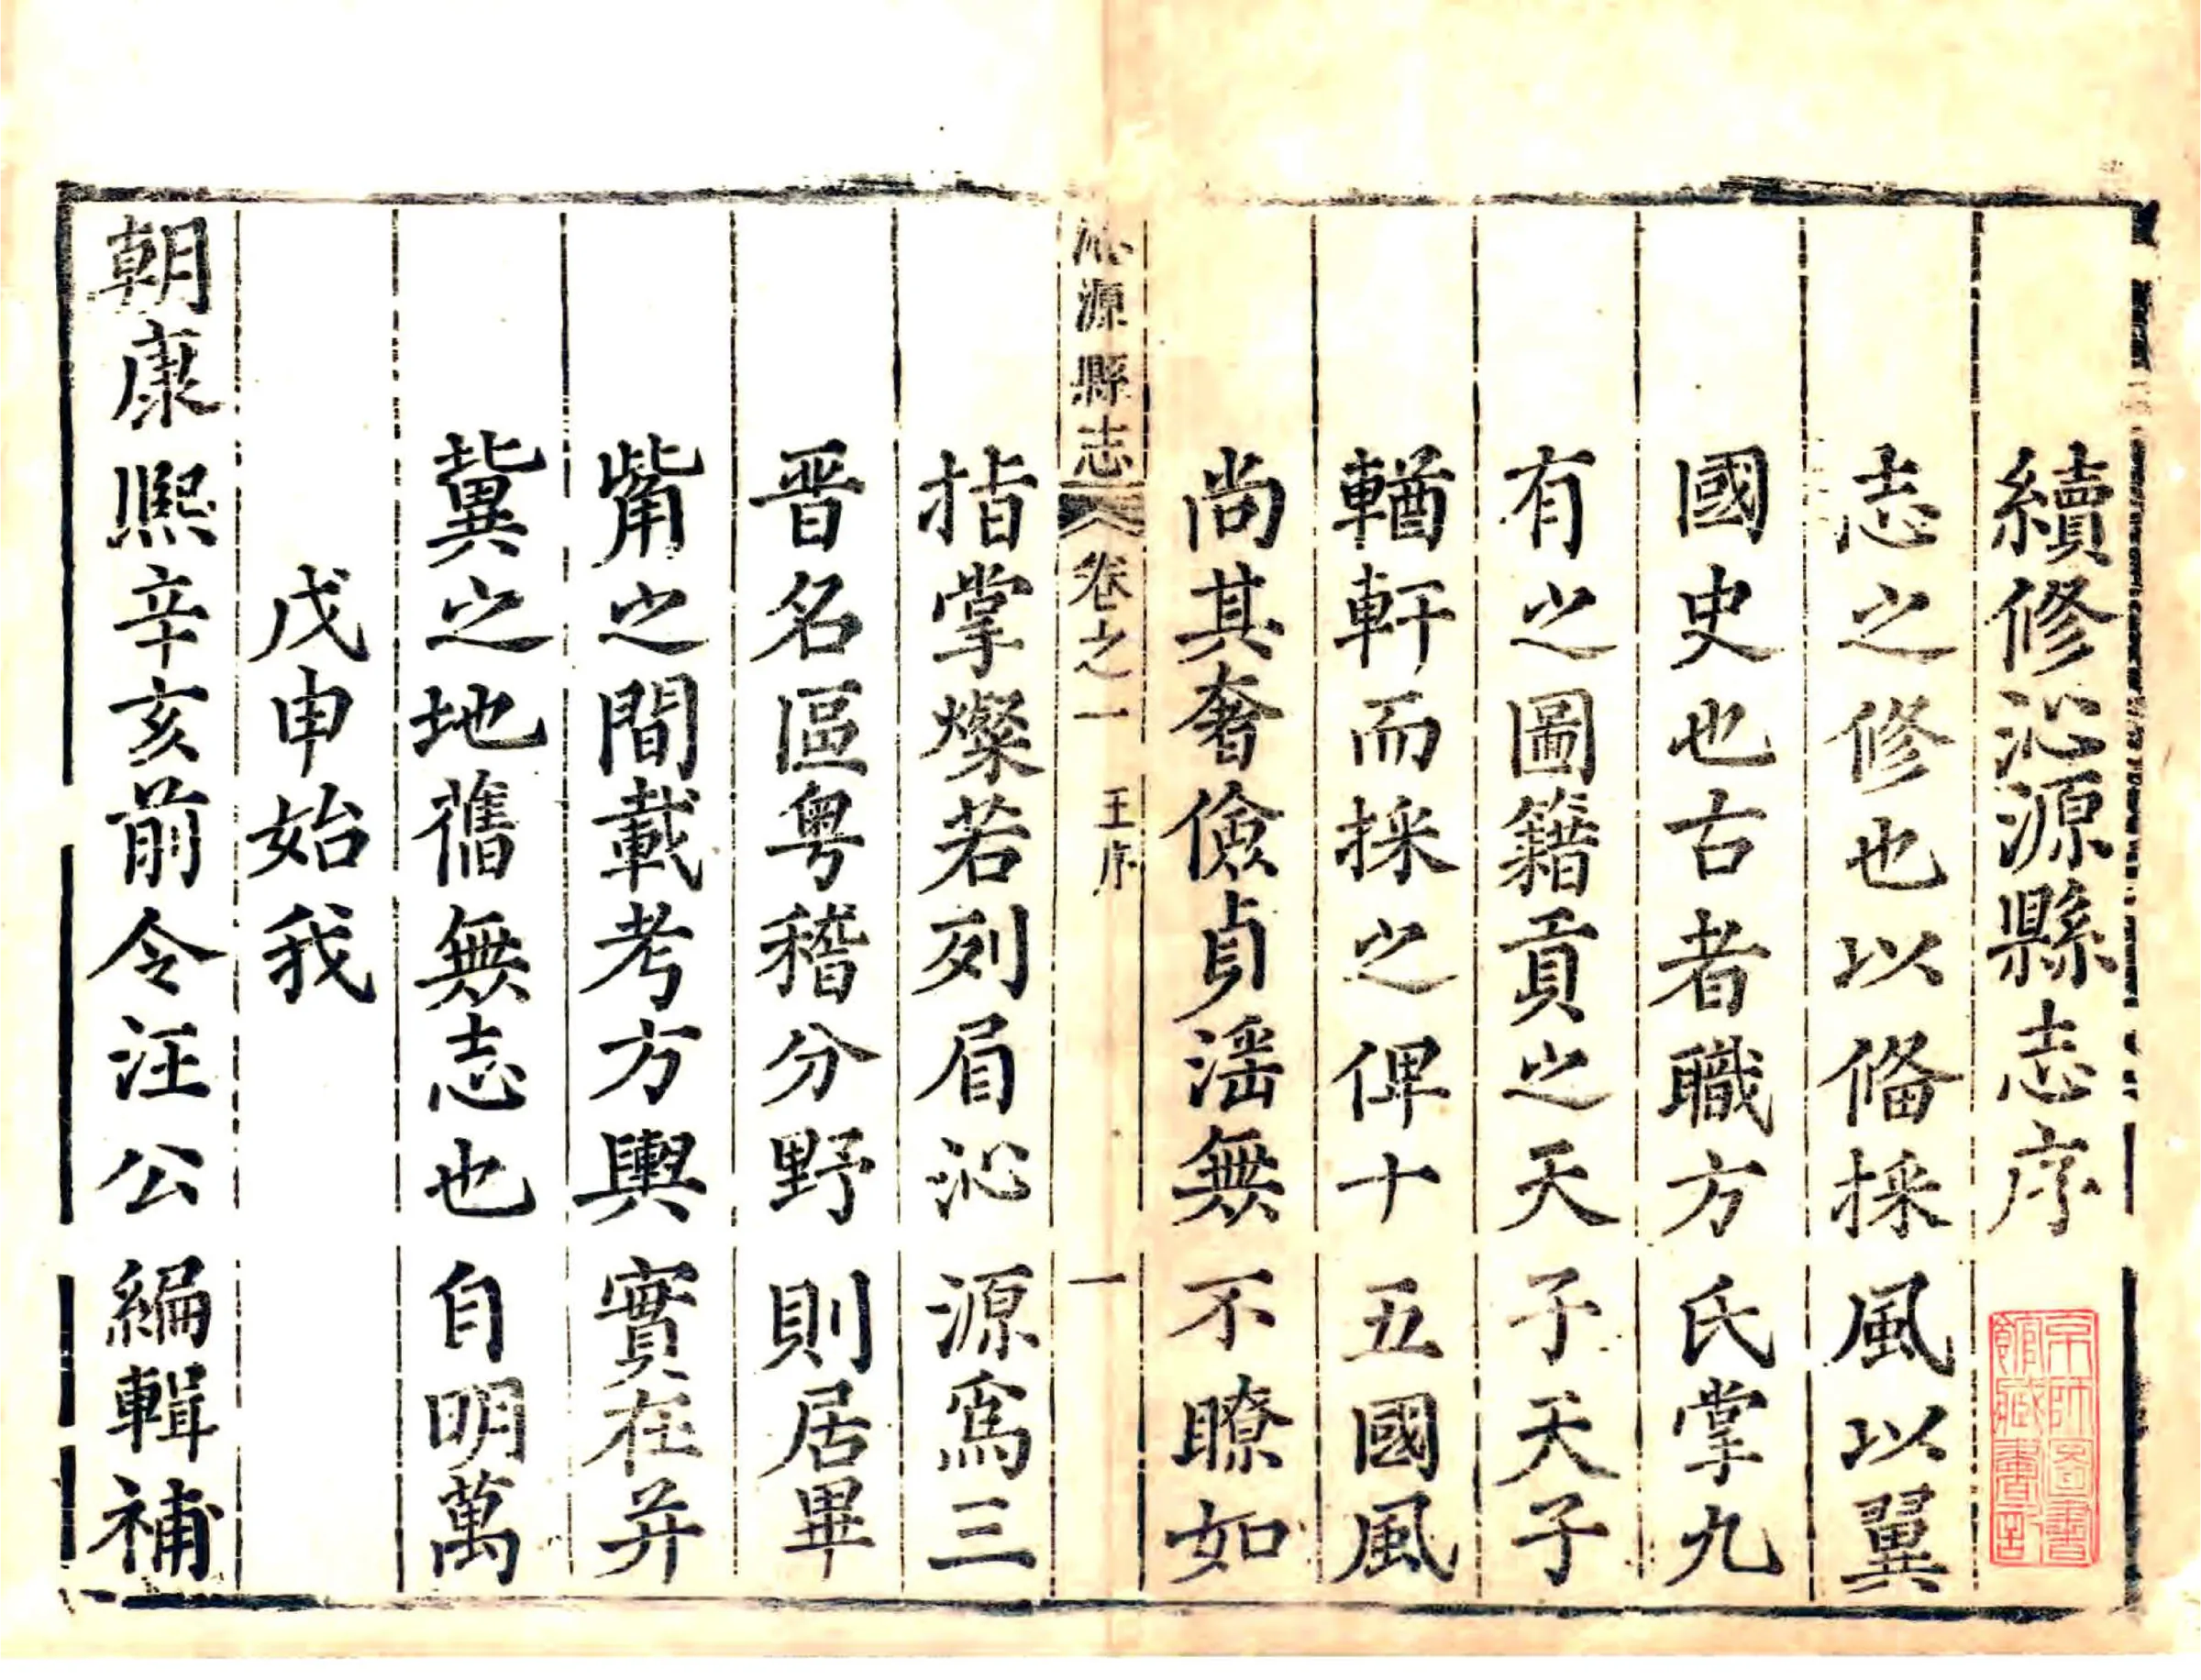 續修沁源縣志序
志之修也以俻採風以翼
國史也古者職方氏掌九
有之圖籍貢之天子天子
輶軒而採之俾十五國風
尚其奢儉貞滛無不瞭如
沁源縣志
卷之一
王序
一
指掌燦若列眉沁源爲三
晋名區粤稽分野則居畢
觜之間載考方輿實在并
冀之地舊無志也自明萬
戊申始我
朝康熙辛亥前令汪公編輯補
京師圖書
館藏書記